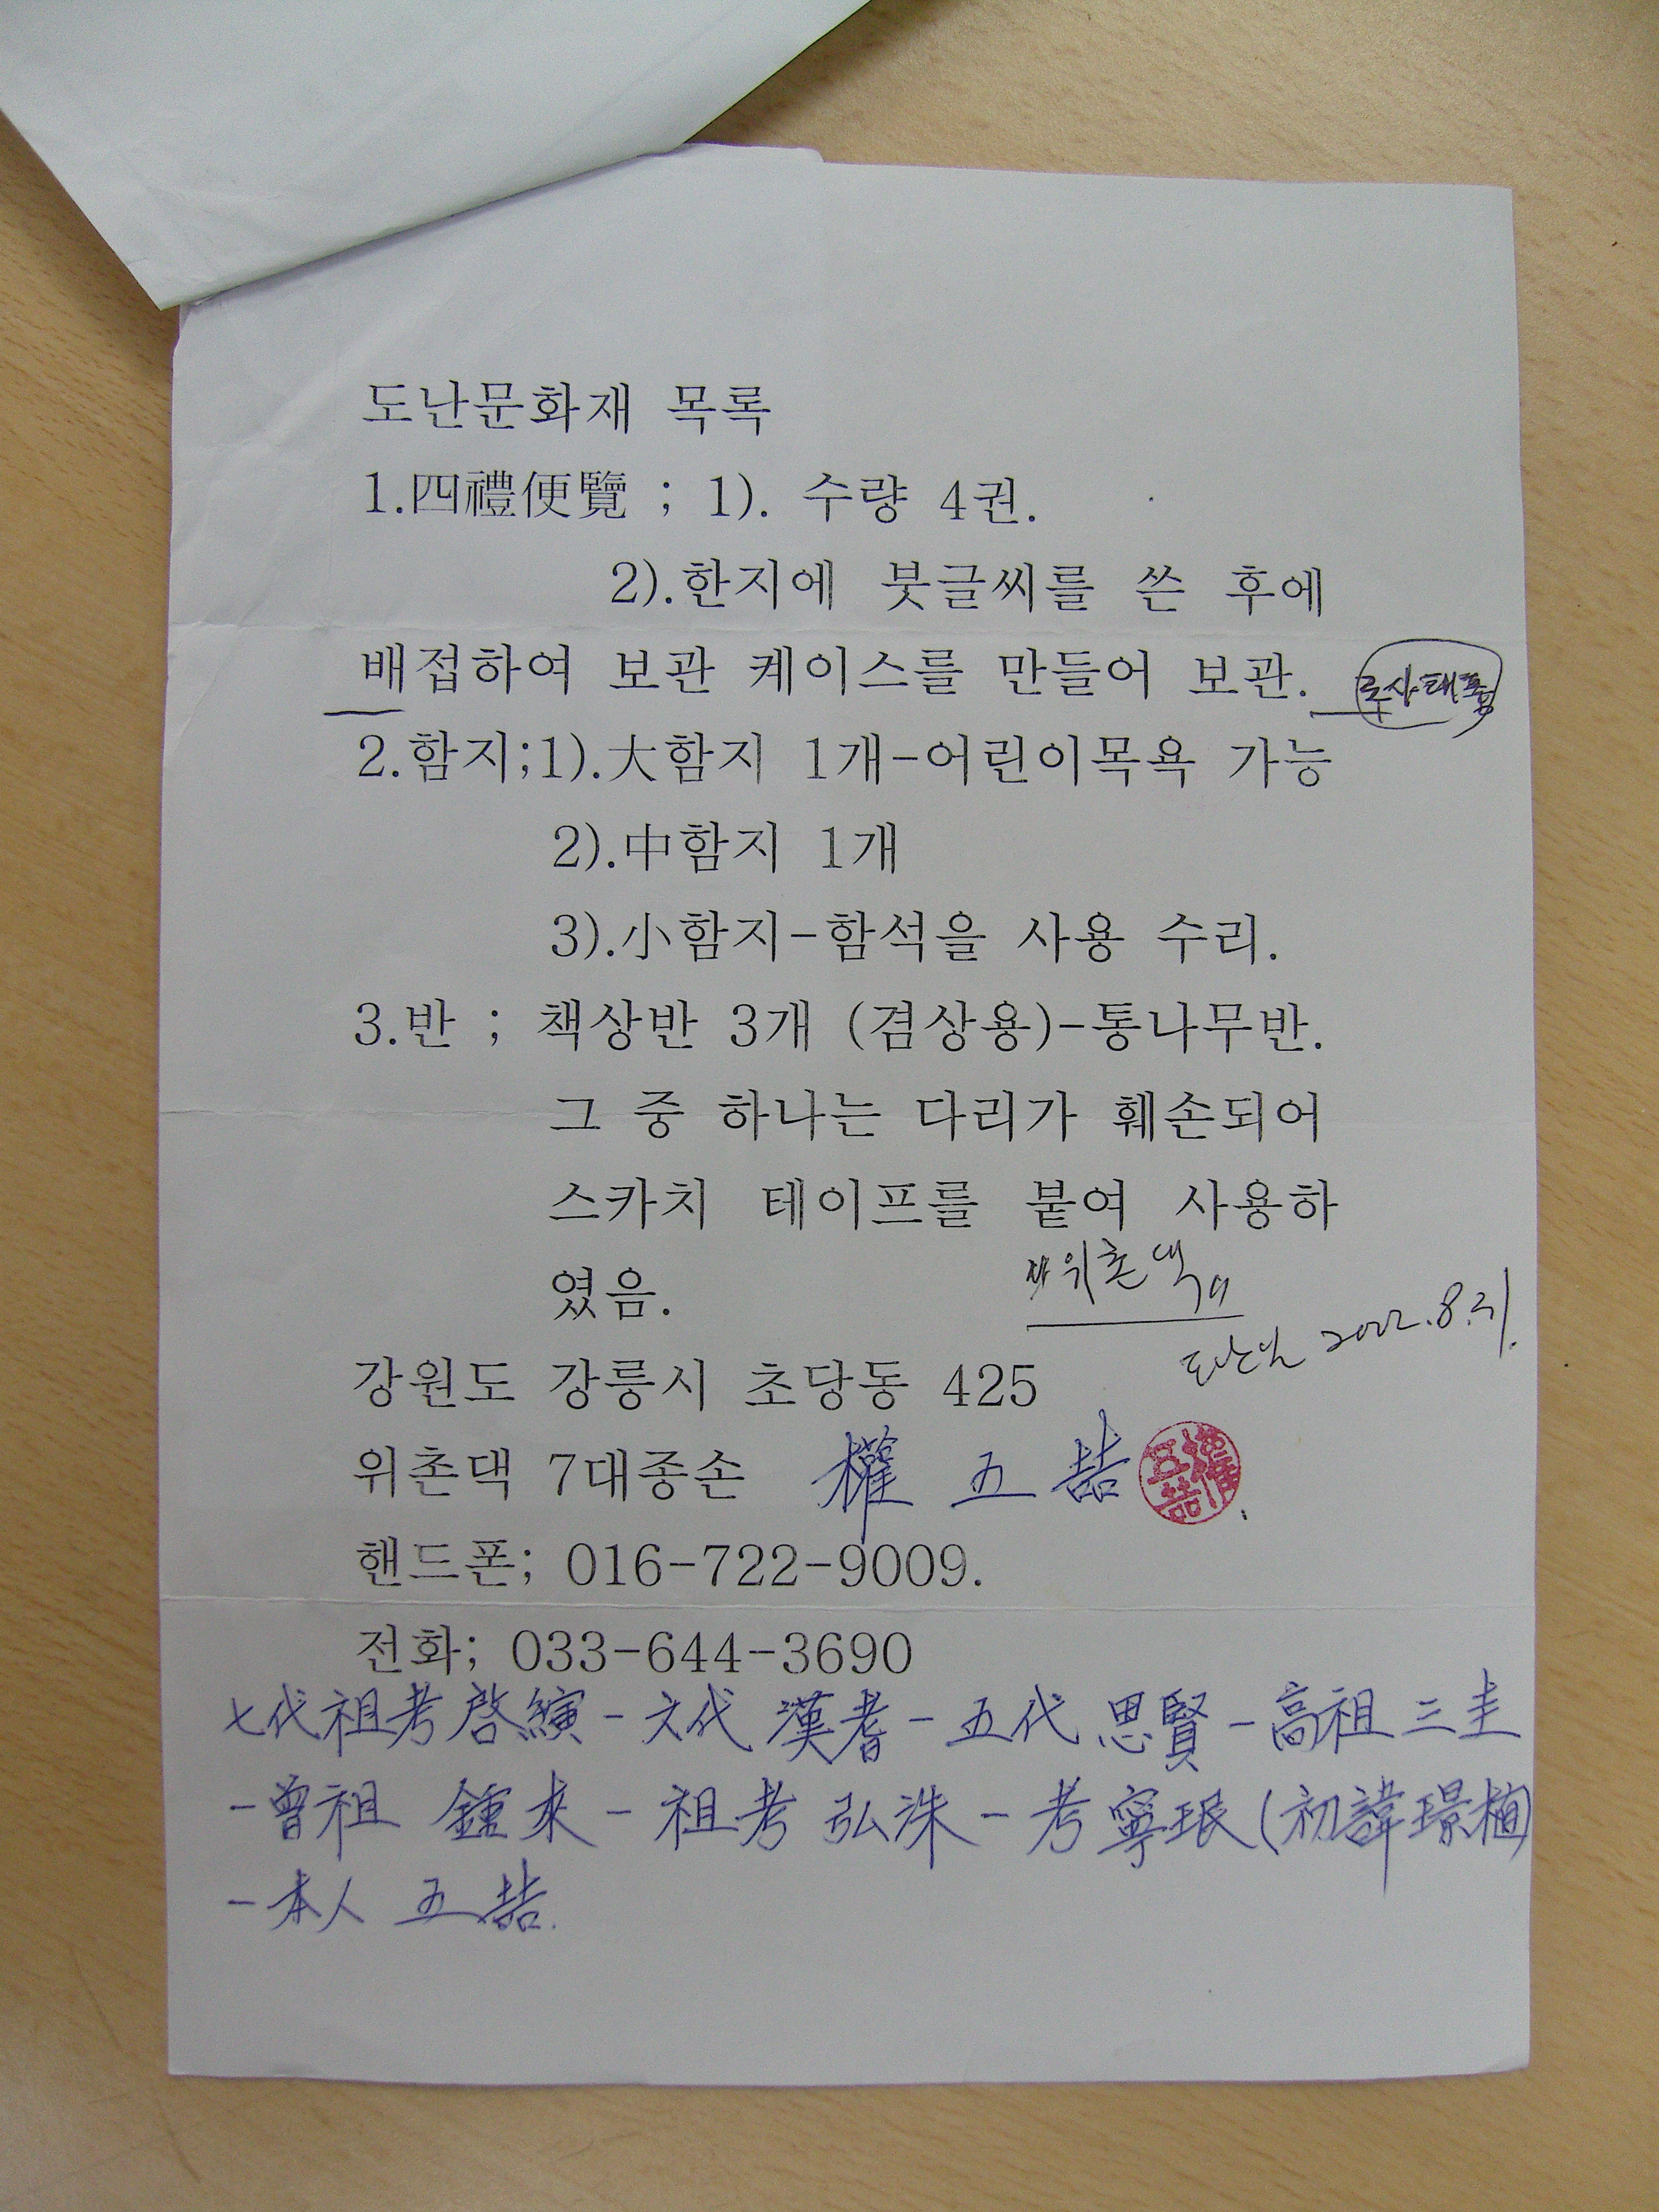 도난문화재 목록
1.四禮便覽 ; 1). 수량 4권.
2).한지에 붓글씨를 쓴 후에
배접하여 보관 케이스를 만들어 보관.
루사태풍
2.함지;1).大함지 1개-어린이목욕 가능
2).中함지 1개
3).小함지-함석을 사용 수리.
3.반 ; 책상반 3개 (겸상용)-통나무반.
그 중 하나는 다리가 훼손되어
스카치 테이프를 붙여 사용하
였음.
위촌댁
도난일
강원도 강릉시 초당동 425
위촌댁 7대종손 權 五喆
핸드폰; 016-722-9009.
전화; 033-644-3690
七代祖考 啓縯 - 六代 漢耆 - 五代 思賢 - 高祖 三圭
-曾祖 鍾來 - 祖考 弘洙 - 考 寧珉 (初諱璟植)
-本人 五喆.